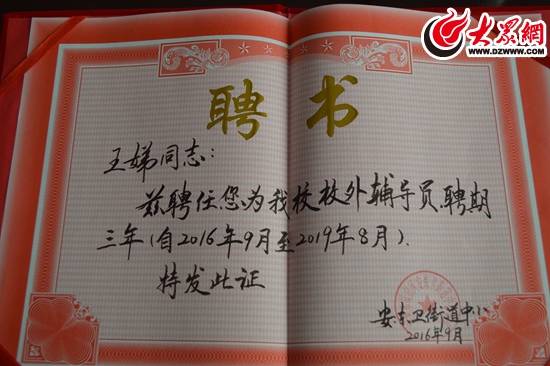 大众網
WWW.DZWWW.COM
聘书
王娣同志：
兹聘任您为我校校外辅导员聘期
三年(自2016年9月至2019年8月).
特发此证
安东卫街道中小
2016年9月